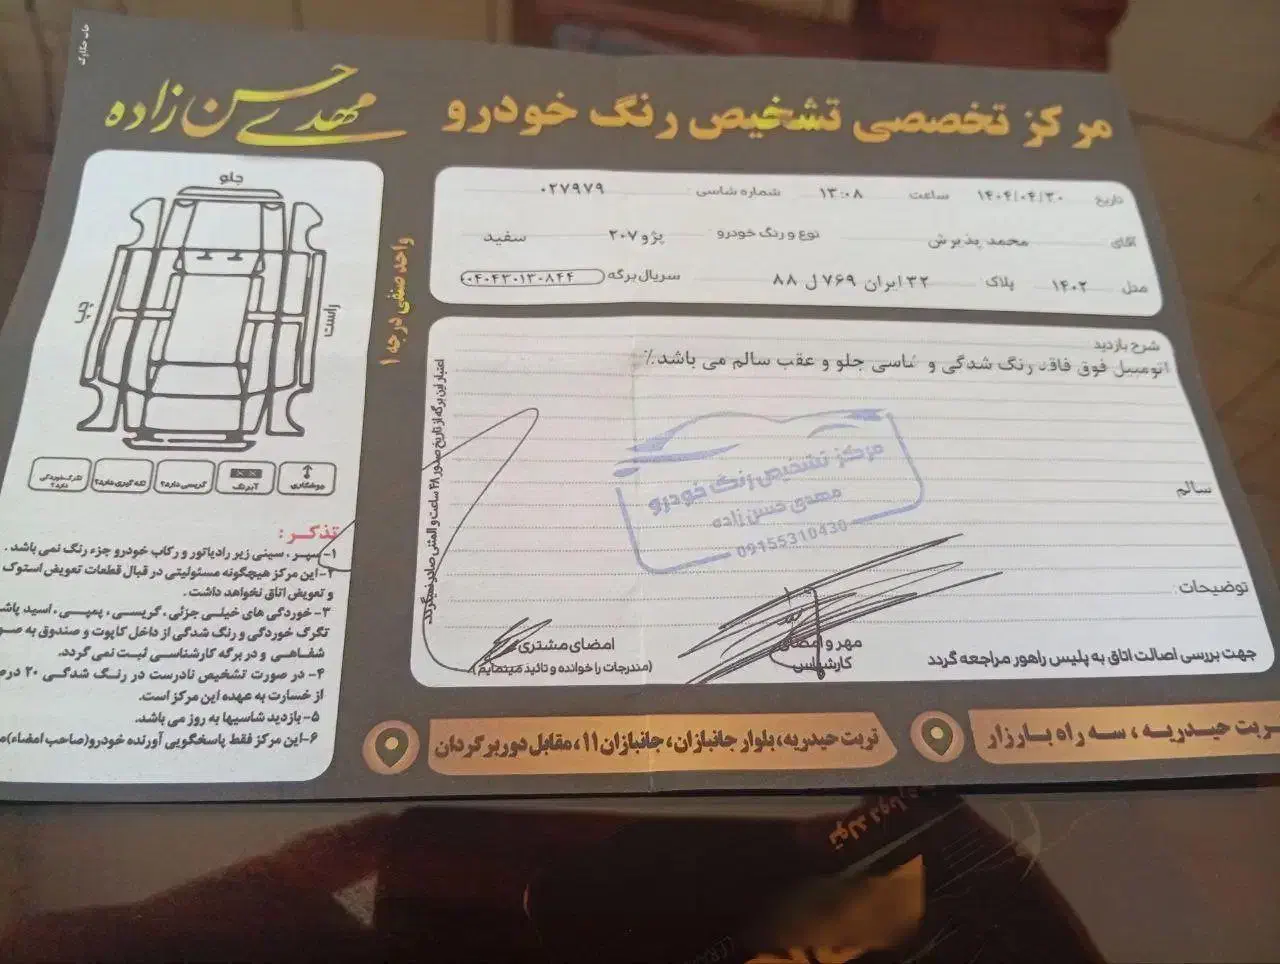 چاپ حکاک
مرکز تخصصی تشخیص رنگ خودرو مهدی حسن زاده
تاریخ ۱۴۰۴/۰۴/۳۰ ساعت ۱۳:۰۸ شماره شاسی: ۰۲۷۹۷۹
آقای محمد پذیرش نوع و رنگ خودرو پژو ۲۰۷ سفید
مدل ۱۴۰۲ پلاک ۳۲ ایران ۷۶۹ ل ۸۸ سریال برگه ۰۴۰۴۳۰۱۳۰۸۴۴
شرح بازدید
اتومبیل فوق فاقد رنگ شدگی و شاسی جلو و عقب سالم می باشد.٪
سالم
توضیحات:
مرکز تشخیص رنگ خودرو
مهدی حسن زاده
09155310430
مهر و امضای
کارشناس
امضای مشتری
(مندرجات را خوانده و تائید مینمایم)
جهت بررسی اصالت اتاق به پلیس راهور مراجعه گردد
اعتبار این برگه از تاریخ صدور ۴۸ ساعت و المثنی صادر نمیگردد.
واحد صنفی درجه ۱
جلو
راست
چپ
موشکاری
آبرنگ
گریسی دارد؟
لکه گیری دارد؟
تگرگ خوردگی دارد؟
تذکر:
۱- سپر، سینی زیر رادیاتور و رکاب خودرو جزء رنگ نمی باشد.
۲- این مرکز هیچگونه مسئولیتی در قبال قطعات تعویض استوک
و تعویض اتاق نخواهد داشت.
۳- خوردگی های خیلی جزئی، گریسی، پمپی، اسید پاش
تگرگ خوردگی و رنگ شدگی از داخل کاپوت و صندوق به صو
شفاهی و در برگه کارشناسی ثبت نمی گردد.
۴- در صورت تشخیص نادرست در رنگ شدگی ۲۰ درص
از خسارت به عهده این مرکز است.
۵- بازدید شاسیها به روز می باشد.
۶- این مرکز فقط پاسخگویی آورنده خودرو(صاحب امضاء)م
ربت حیدریه، سه راه بارزار
تربت حیدریه، بلوار جانبازان، جانبازان ۱۱، مقابل دوربرگردان
تولد دوباره